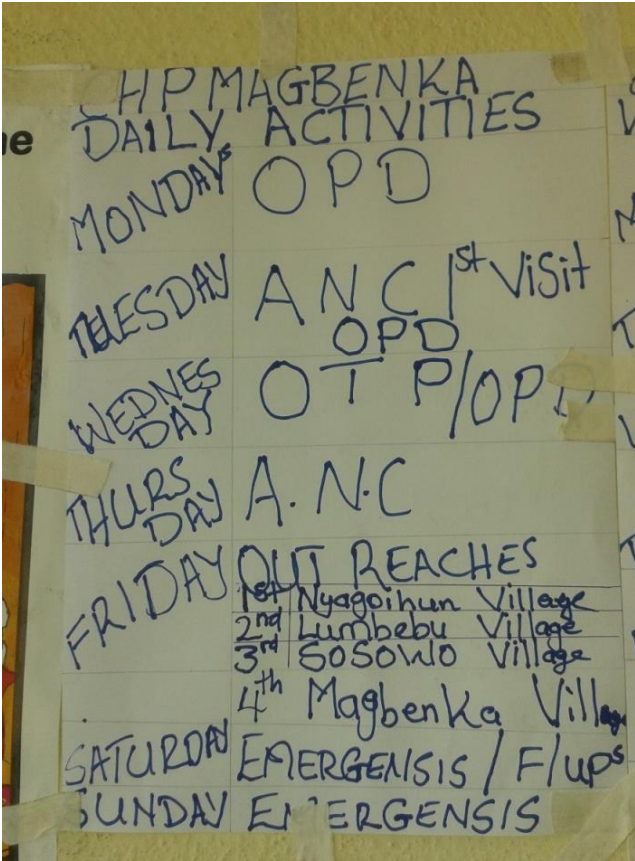 CHP MAGBENKA
DAILY ACTIVITIES
MONDAYS OPD
TUESDAY ANC 1st Visit
OPD
WEDNES OTP/OPD
DAY
THURS A.N.C
DAY
FRIDAY OUT REACHES
1st Nyagoihun Village
2nd Lumbebu Village
3rd SOSOWO Village
4th Magbenka Village
SATURDAY EMERGENSIS / F/ups
SUNDAY EMERGENSIS